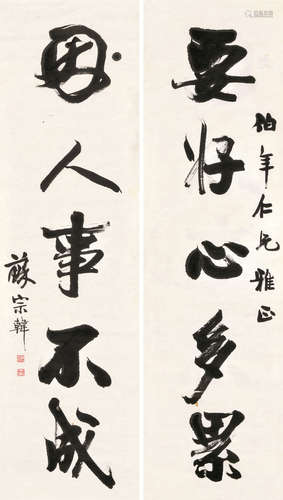 要好心多累
伯年仁兄雅正
因人事不成
苏宗韓